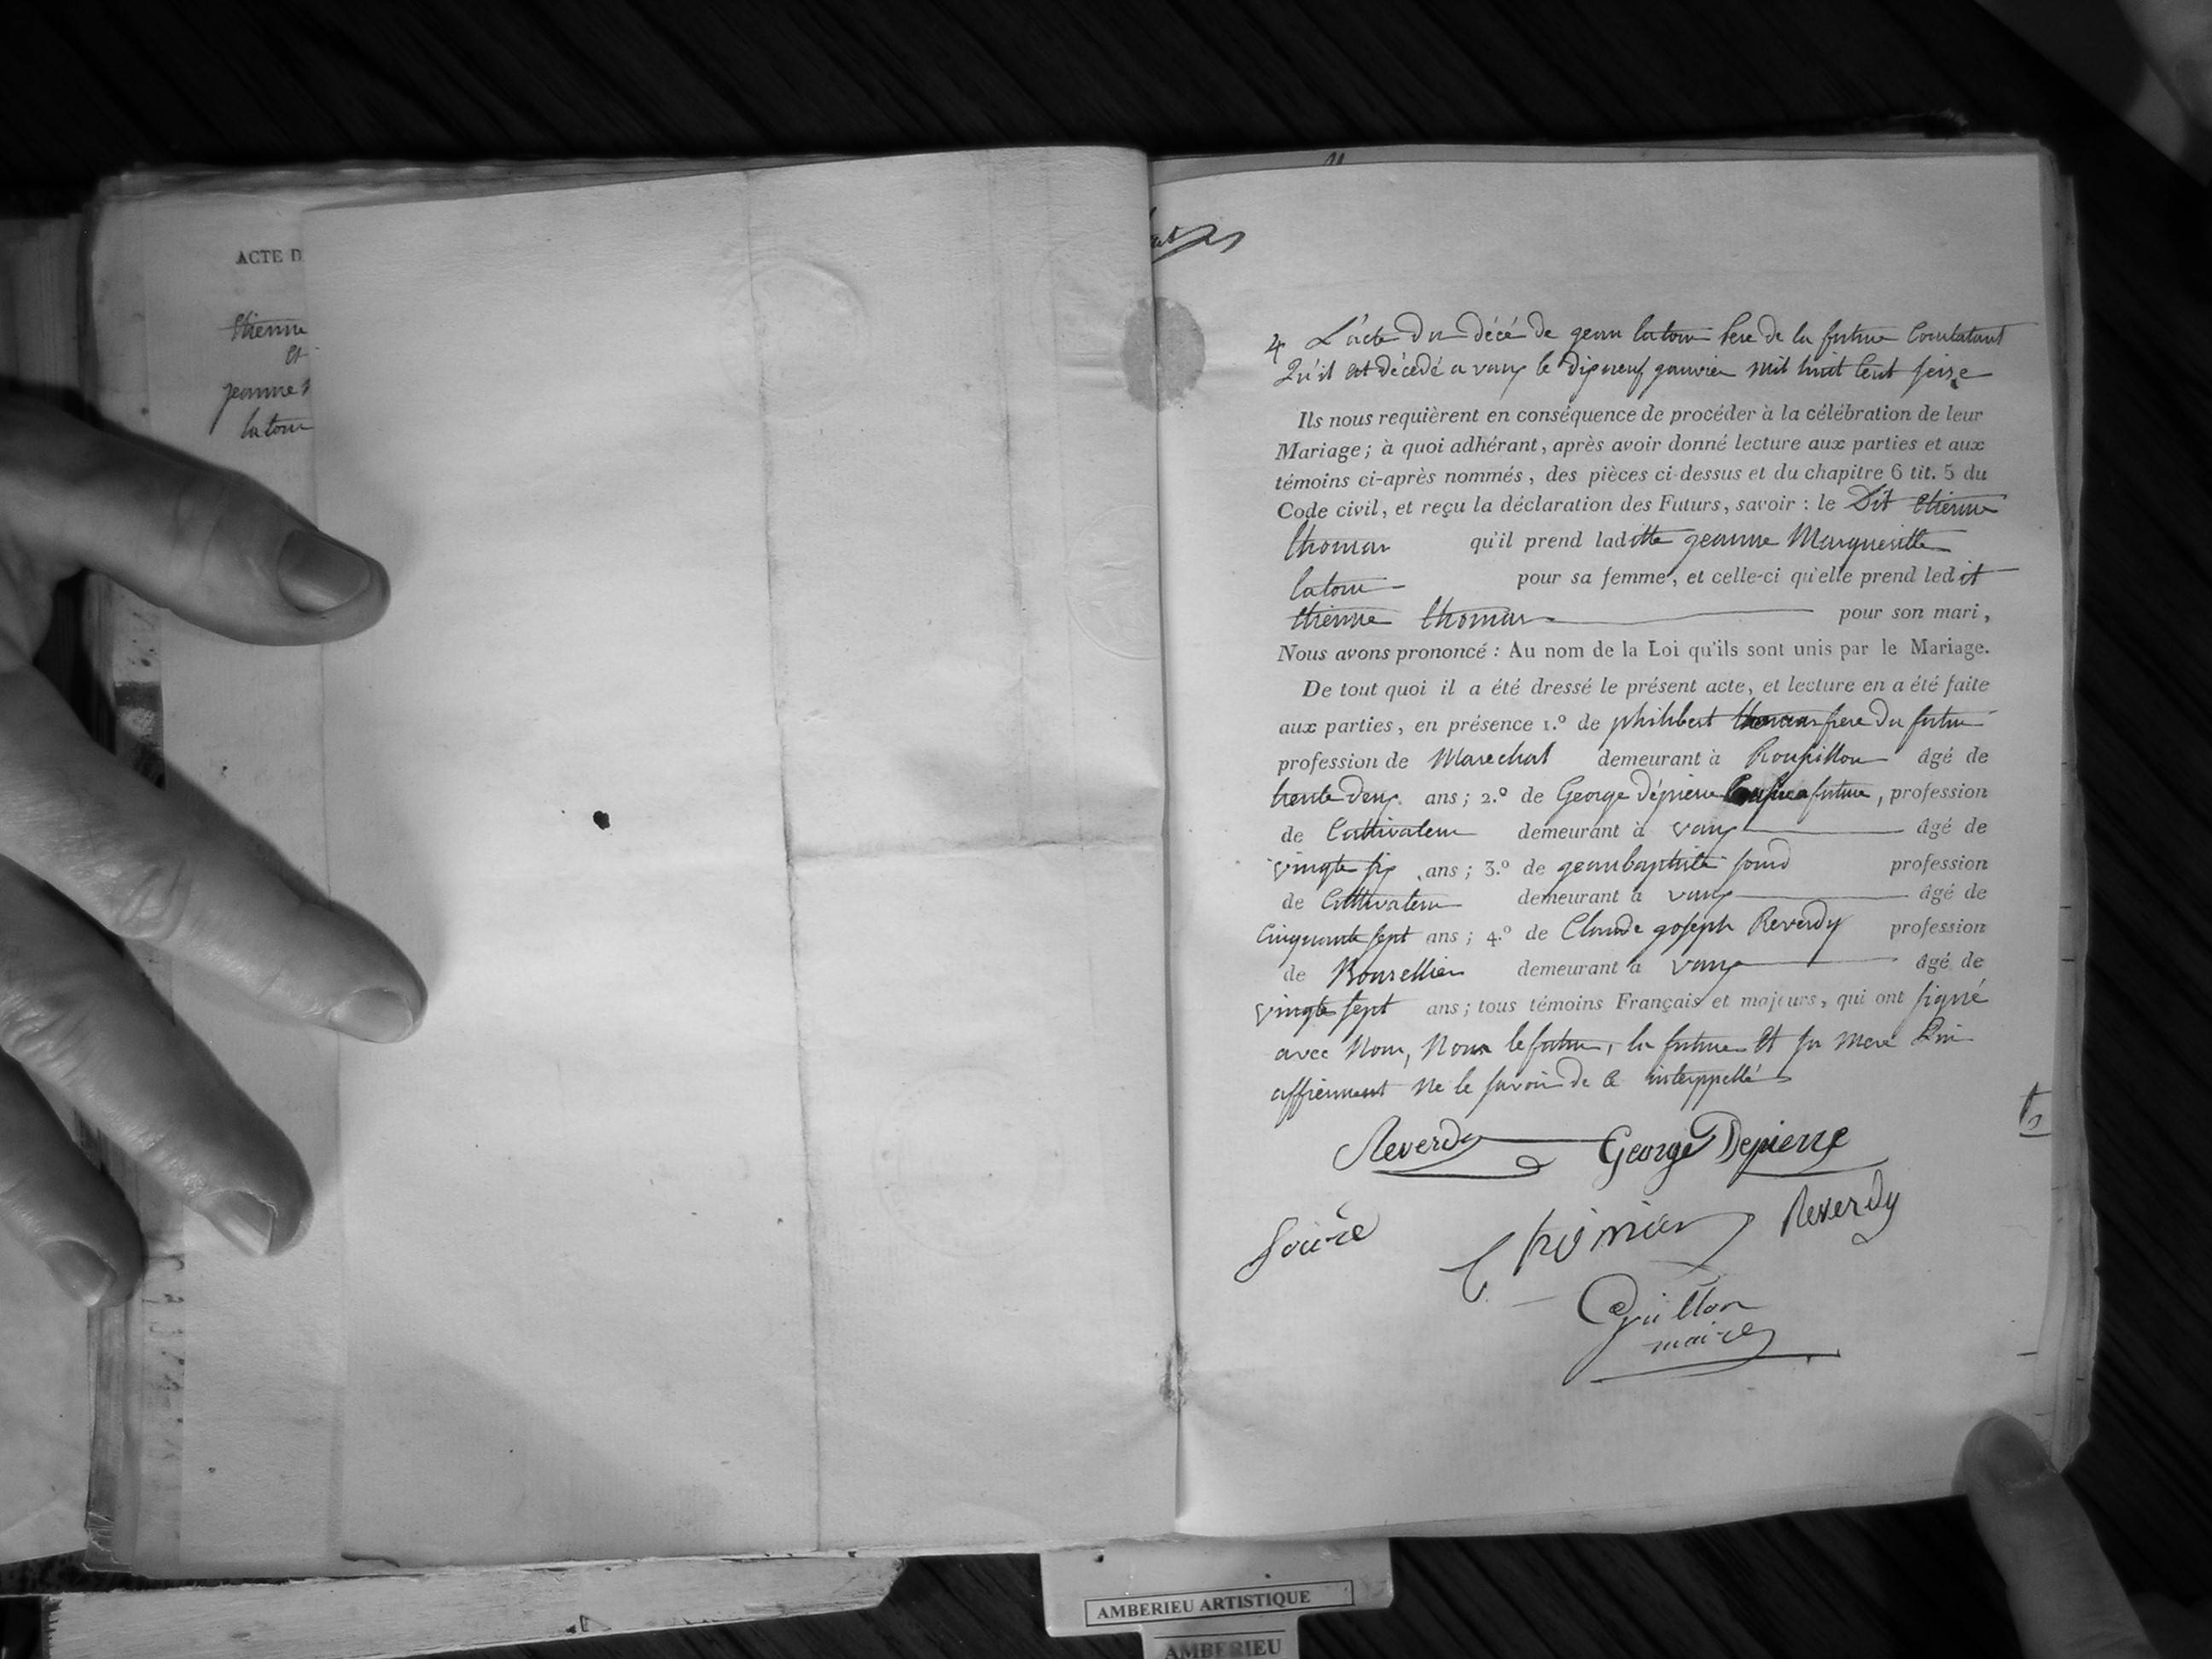 ACTE D
Etienne
et
jeanne M
latour
4 L'acte du décé de jean latour Pere de la future Constatant
Qu'il est décédé a vaux le dix neuf janvier mil huit Cent seize
Ils nous requièrent en conséquence de procéder à la célébration de leur
Mariage ; à quoi adhérant, après avoir donné lecture aux parties et aux
témoins ci-après nommés, des pièces ci-dessus et du chapitre 6 tit. 5 du
Code civil, et reçu la déclaration des Futurs, savoir : le Dit Etienne
thomas qu'il prend laditte jeanne Margueritte
latour pour sa femme, et celle-ci qu'elle prend ledit
Etienne thomas pour son mari,
Nous avons prononcé : Au nom de la Loi qu'ils sont unis par le Mariage.
De tout quoi il a été dressé le présent acte, et lecture en a été faite
aux parties, en présence 1.º de philibert thomas frere du futur
profession de Marechal demeurant à âgé de
trente deux ans ; 2.º de George Dépierre future, profession
de Cultivateur demeurant à vaux âgé de
vingte six ans ; 3.º de jean baptiste profession
de Cultivateur demeurant à vaux âgé de
Cinquante sept ans ; 4.º de Claude joseph Reverdy profession
de Bourellier demeurant à vaux âgé de
vingte sept ans ; tous témoins Français et majeurs, qui ont signé
avec Nous, Non le futur, la future Et sa mere Qui
affirment Ne le savoir de ce interppellés
Reverdy George Depierre
thomas Reverdy
Guillon
maire
AMBERIEU ARTISTIQUE
AMBERIEU